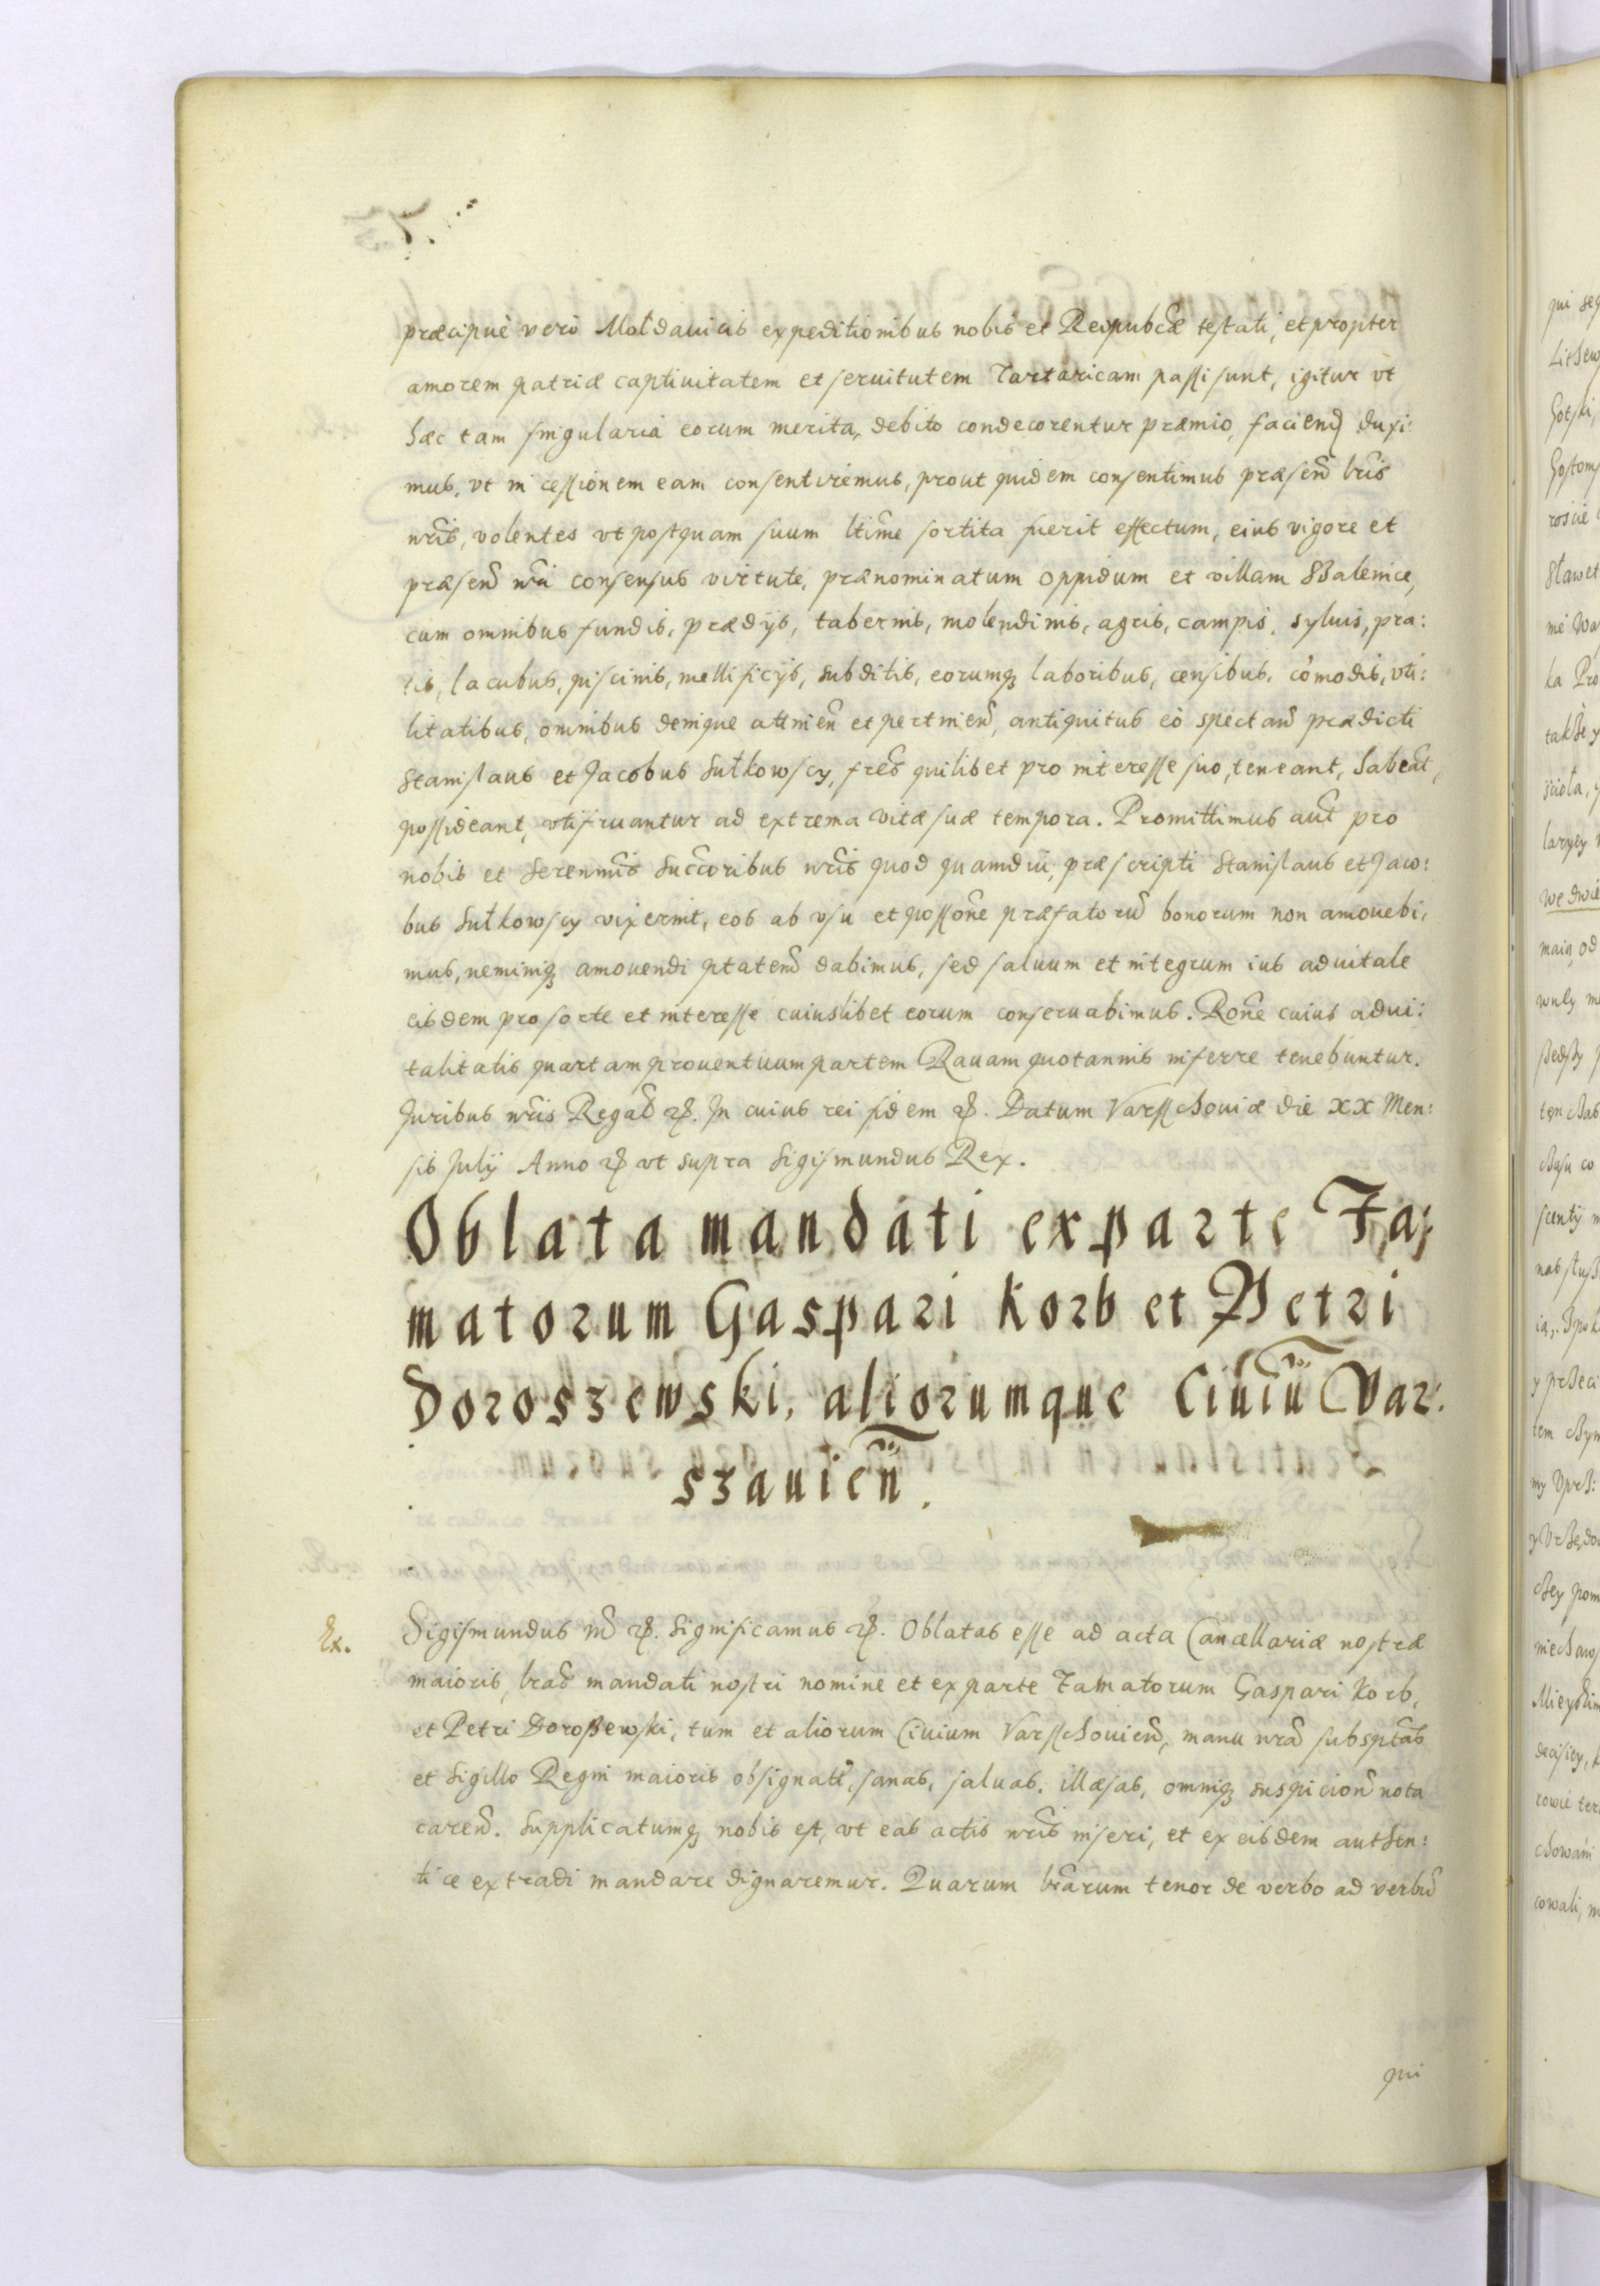 præcipuè verò Moldauicis expeditionibus nobis et Reipubcæ testati, et propter
amorem patriæ captiuitatem et seruitutem Tartaricam passi sunt, igitur vt
hæc tam singularia eorum merita, debito condecorentur præmio, faciend duxi:
mus, vt in cessionem eam consentiremus, prout quidem consentimus præsen lris
nris, volentes vt postquam suum ltime sortita fuerit effectum, eius vigore et
præsen nri consensus virtute, prænominatum oppidum et villam Balenice,
cum omnibus fundis, prædijs, tabernis, molendinis, agris, campis, syluis, pra:
tis, lacubus, piscinis, mellificijs, subditis, eorumq laboribus, censibus, cõmodis, vti:
litatibus, omnibus denique attinen et pertinen, antiquitus eò spectan prædicti
Stanislaus et Jacobus Sułkowscy, fres quilibet pro interesse suo, teneant, habeāt,
possideant, vtifruantur ad extrema vitæ suæ tempora. Promittimus aut pro
nobis et Serenmis Succoribus nris quod quamdiu, præscripti Stanislaus et Jaco:
bus Sułkowscy vixerint, eos ab vsu et possone præfatorũ bonorum non amouebi,
mus, neminiq amouendi ptatem dabimus, sed saluum et integrum ius aduitale
eisdem pro sorte et interesse cuiuslibet eorum conseruabimus. Rone cuius adui:
talitatis quartam prouentuum partem Rauam quotannis inferre tenebuntur.
Juribus nris Regal &. In cuius rei fidem &. Datum Varsschouiæ die XX Men:
sis Julij Anno & vt supra Sigismundus Rex.
Oblata mandati ex parte Fa;
matorum Gaspari Korb et Petri
Doroszewski, aliorumque Ciuiũ Var:
szauien.
Ex. Sigismundus &. Significamus &. Oblatas esse ad acta Cancellariæ nostræ
maioris, lras mandati nostri nomine et ex parte Famatorum Gaspari Korb,
et Petri Doroßewski, tum et aliorum Ciuium Varsschouien, manu nra subsptas
et Sigillo Regni maioris obsignat, sanas, saluas, illæsas, omniq suspicion nota
caren. Supplicatumq nobis est, vt eas actis nris inseri, et ex eisdem authen:
tice extradi mandare dignaremur. Quarum lrarum tenor de verbo ad verbũ
qui